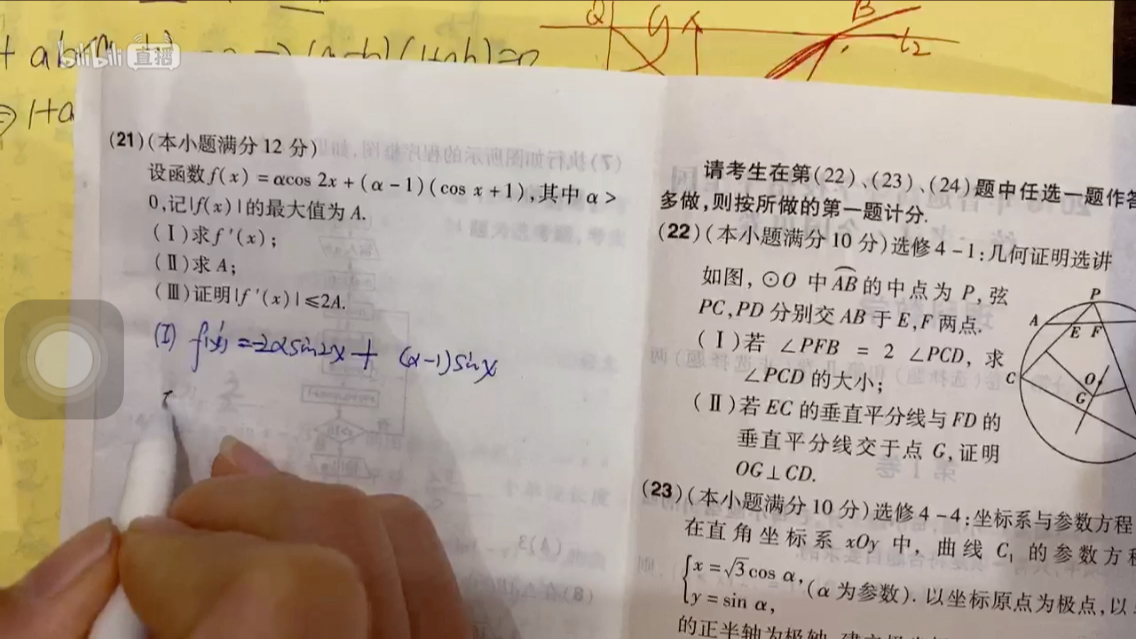 bilibili 直播
⇒ 1+a
Q
y
B
l₂
(21)(本小题满分12分)
设函数f(x)=αcos 2x+(α-1)(cos x+1),其中α>
0,记|f(x)|的最大值为A.
(Ⅰ)求f′(x);
(Ⅱ)求A;
(Ⅲ)证明|f′(x)|≤2A.
(I) f(x)′=-2αsin2x+ (α-1)sinx
请考生在第(22)、(23)、(24)题中任选一题作答
多做,则按所做的第一题计分.
(22)(本小题满分10分)选修4-1:几何证明选讲
如图,⊙O中AB的中点为P,弦
PC,PD分别交AB于E,F两点.
(Ⅰ)若∠PFB=2∠PCD,求
∠PCD的大小;
(Ⅱ)若EC的垂直平分线与FD的
垂直平分线交于点G,证明
OG⊥CD.
P
A
E F
C
O
G
(23)(本小题满分10分)选修4-4:坐标系与参数方程
在直角坐标系xOy中,曲线C₁的参数方程
x=√3cos α,
(α为参数).以坐标原点为极点,以
y=sin α,
的正半轴为极轴